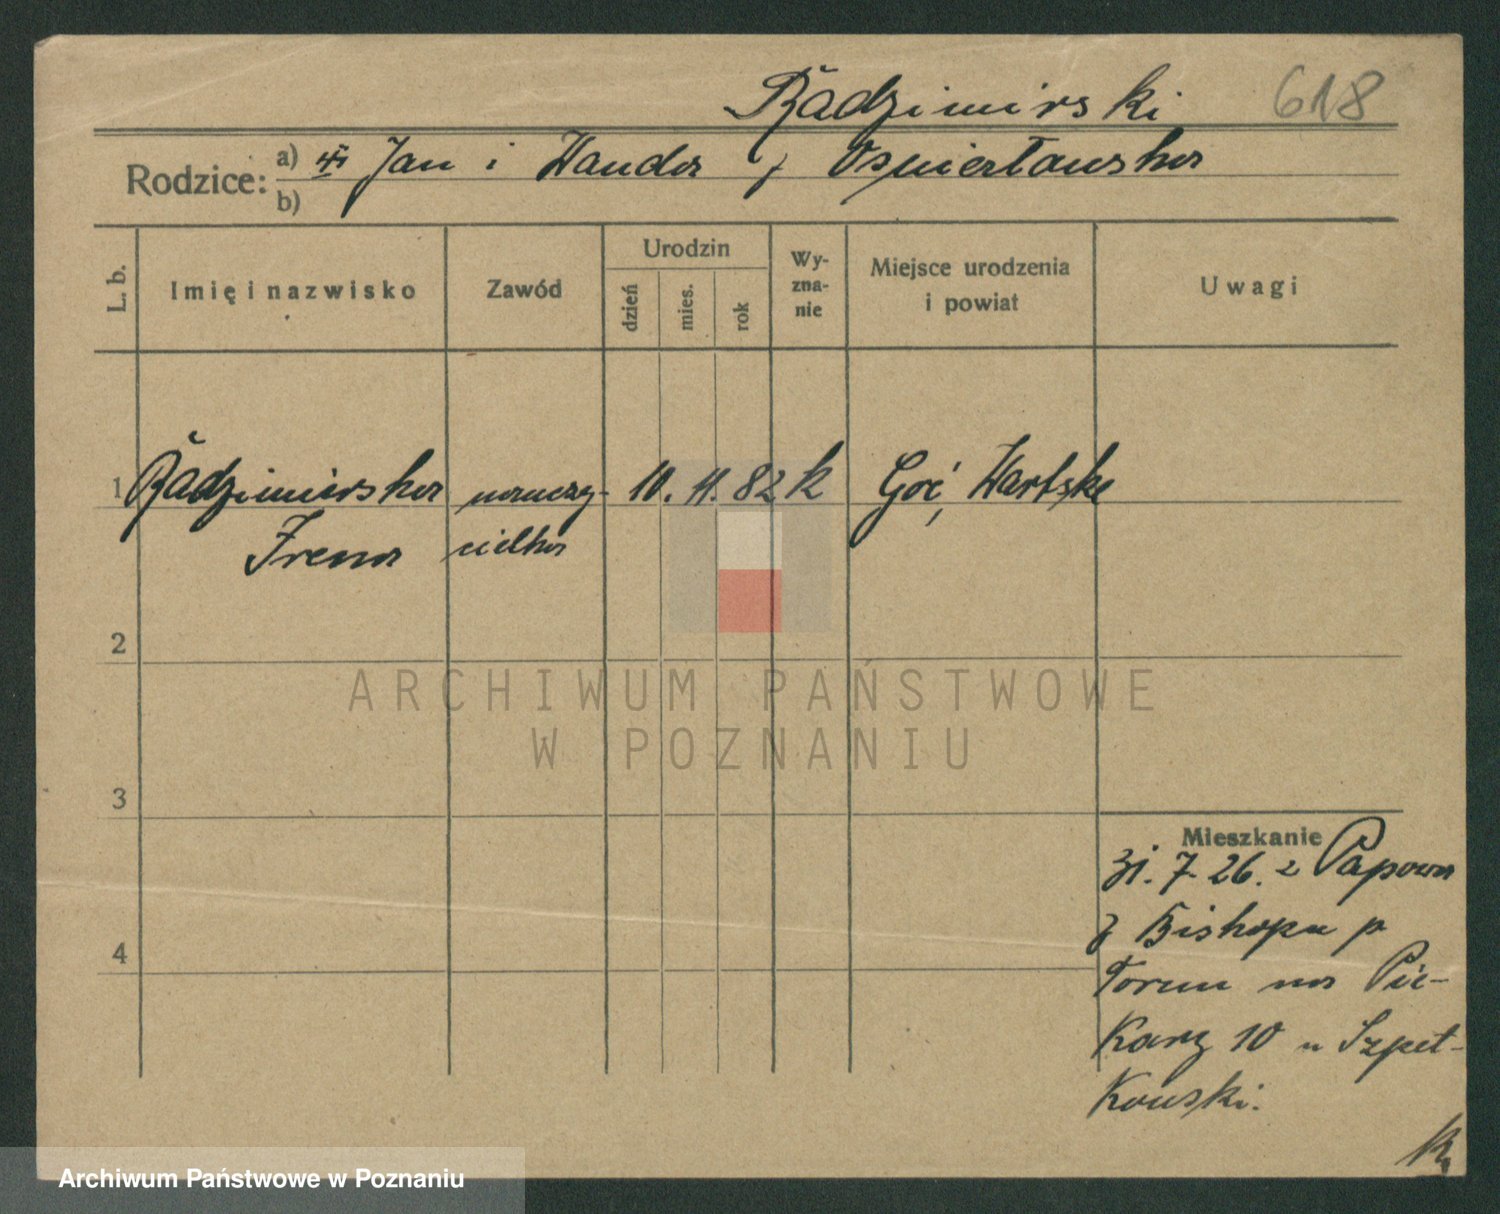 Radzimirski 618
Rodzice: a) Jan i Wanda z
b)
L. b.
Imię i nazwisko
Zawód
Urodzin
dzień
mies.
rok
Wy-
zna-
nie
Miejsce urodzenia
i powiat
Uwagi
1 Radzimirska nauczy- 10. 11. 82 k Goć, Wartske
Irena cielka
2
3
4
Mieszkanie
31. 7. 26. z Papowa
z Biskupa p
Torun na Pie-
Kary 10 u Szpet-
Kowski.
ARCHIWUM PAŃSTWOWE
W POZNANIU
Archiwum Państwowe w Poznaniu